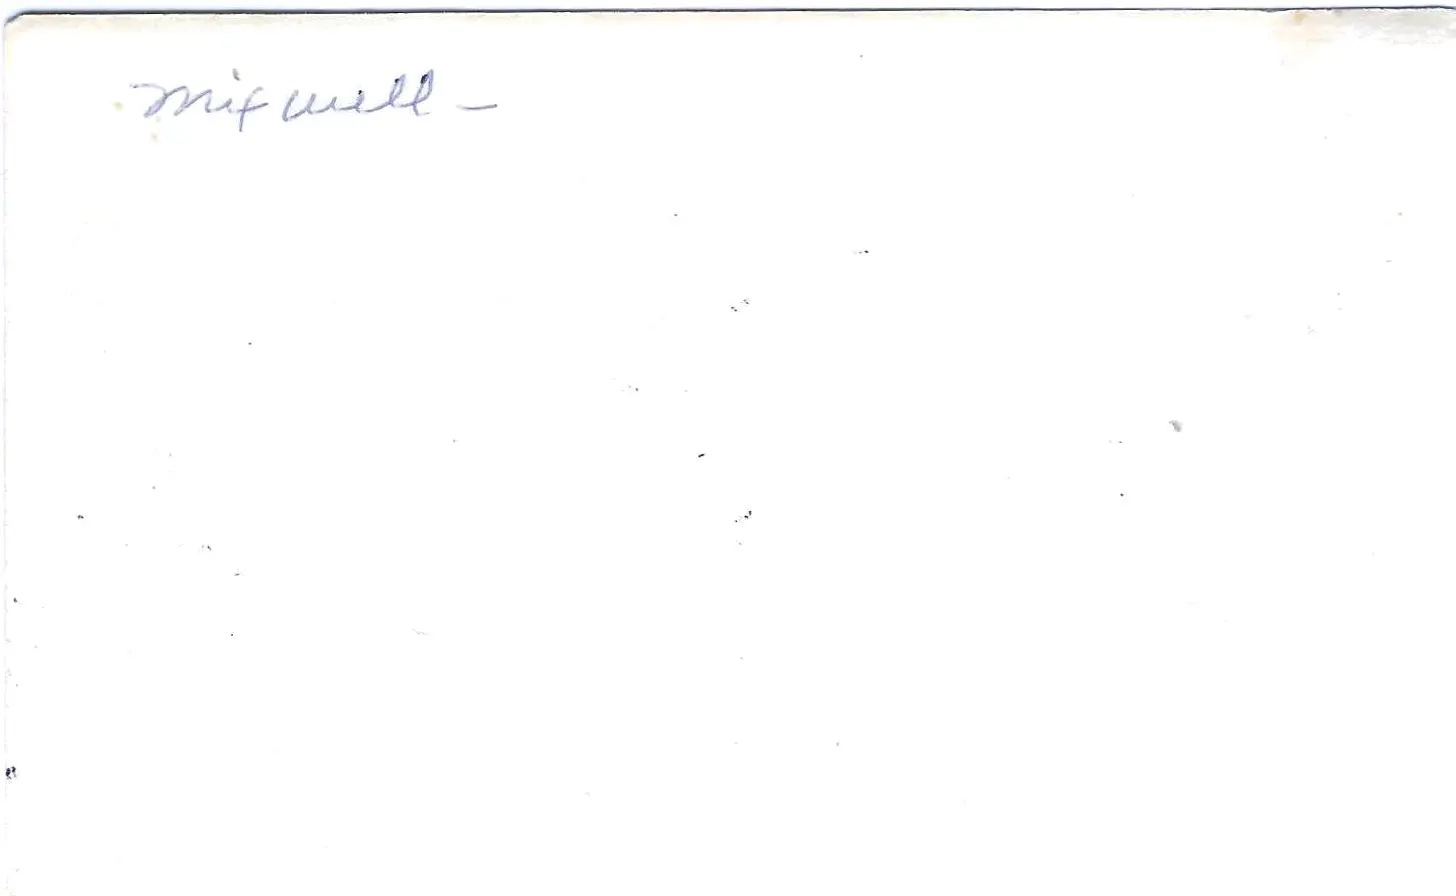 mix well -